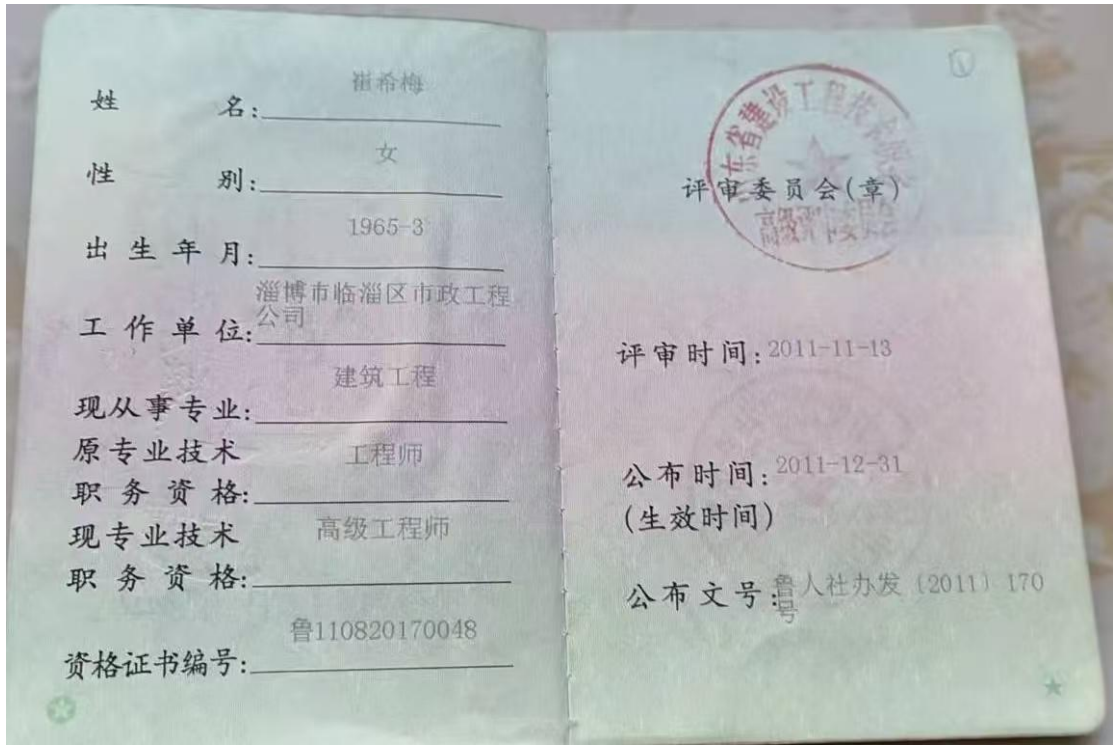 姓 名:崔希梅
性 别:女
出生年月:1965-3
工作单位:淄博市临淄区市政工程
公司
现从事专业:建筑工程
原专业技术
职务资格:工程师
现专业技术
职务资格:高级工程师
资格证书编号:鲁110820170048
东省建设工程技术
评审委员会(章)
高级评审委员会
评审时间:2011-11-13
公布时间:2011-12-31
(生效时间)
公布文号:鲁人社办发〔2011〕170
号